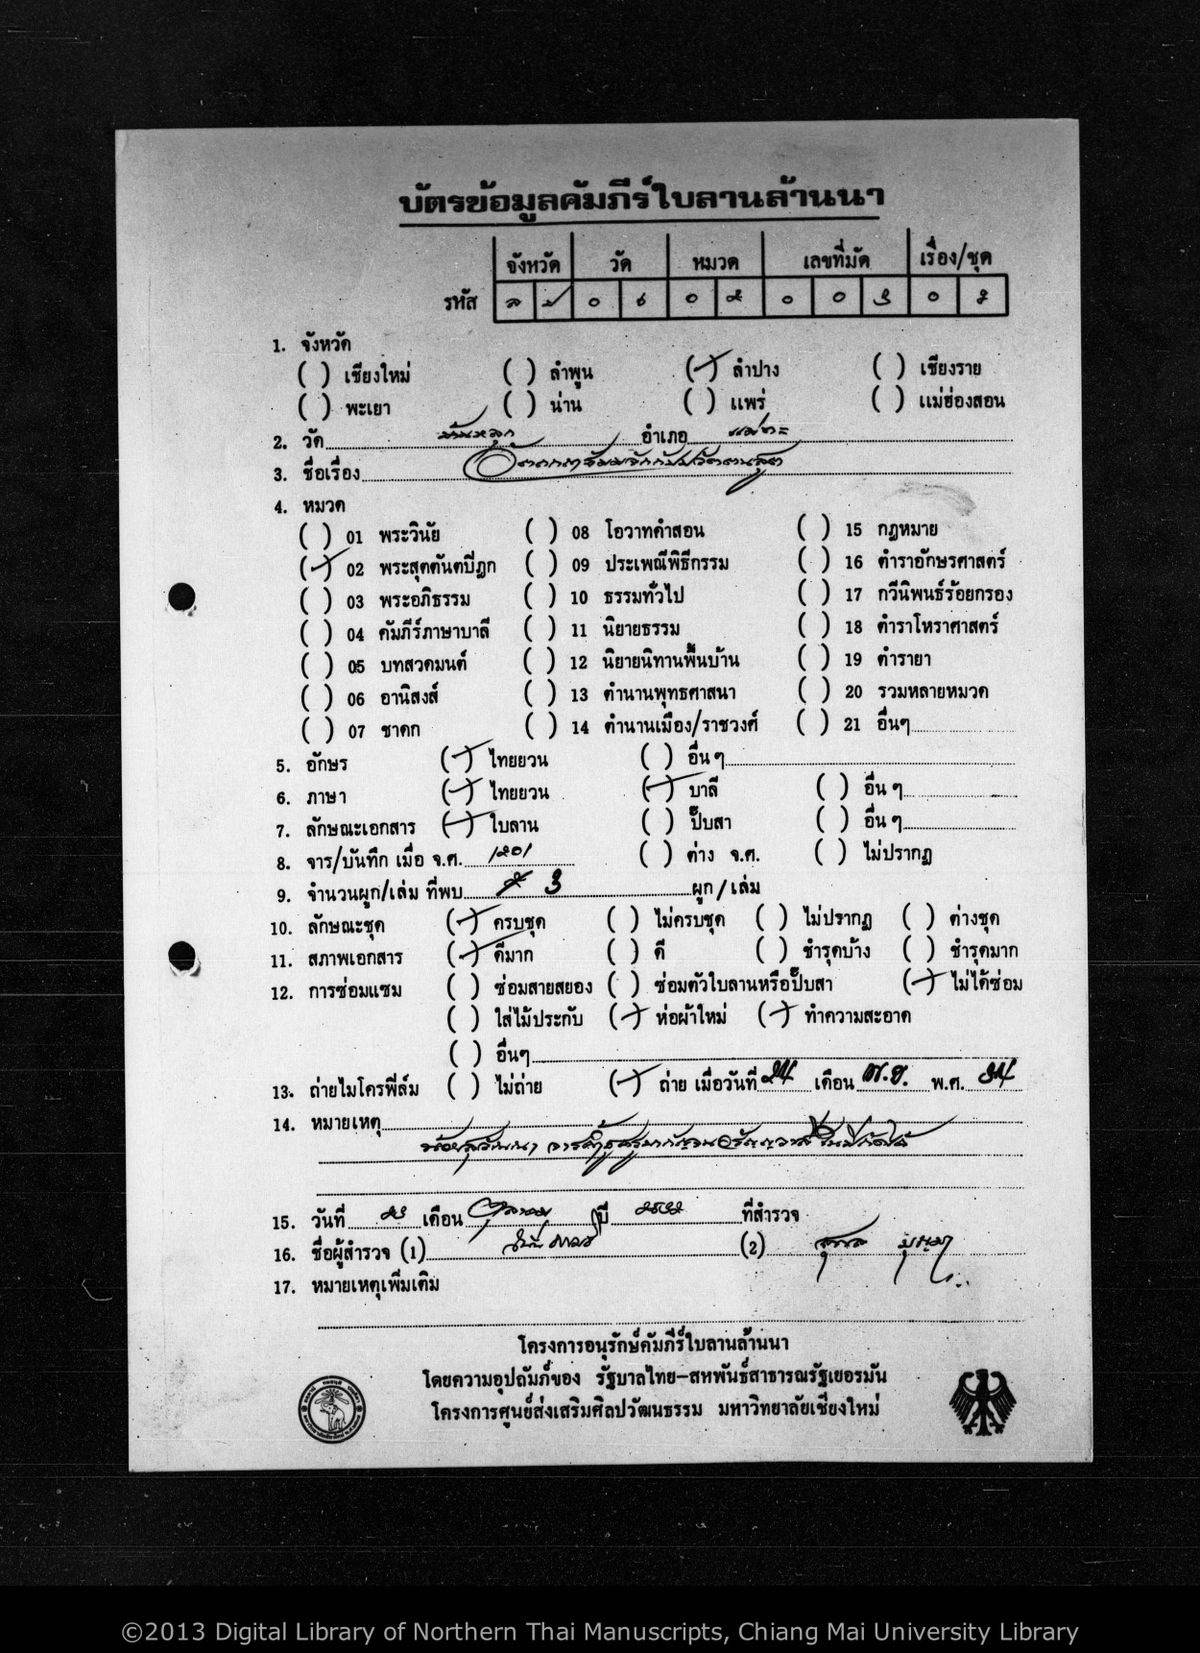 บัตรข้อมูลคัมภีร์ใบลานล้านนา
จังหวัด วัด หมวด เลขที่มัด เรื่อง/ชุด
รหัส
1. จังหวัด
( ) เชียงใหม่ ( ) ลำพูน (/) ลำปาง ( ) เชียงราย
( ) พะเยา ( ) น่าน ( ) แพร่ ( ) แม่ฮ่องสอน
2. วัด อำเภอ แม่ทะ
3. ชื่อเรื่อง
4. หมวด
( ) 01 พระวินัย ( ) 08 โอวาทคำสอน ( ) 15 กฎหมาย
(/) 02 พระสุตตันตปิฎก ( ) 09 ประเพณีพิธีกรรม ( ) 16 ตำราอักษรศาสตร์
( ) 03 พระอภิธรรม ( ) 10 ธรรมทั่วไป ( ) 17 กวีนิพนธ์ร้อยกรอง
( ) 04 คัมภีร์ภาษาบาลี ( ) 11 นิยายธรรม ( ) 18 ตำราโหราศาสตร์
( ) 05 บทสวดมนต์ ( ) 12 นิยายนิทานพื้นบ้าน ( ) 19 ตำรายา
( ) 06 อานิสงส์ ( ) 13 ตำนานพุทธศาสนา ( ) 20 รวมหลายหมวด
( ) 07 ชาดก ( ) 14 ตำนานเมือง/ราชวงศ์ ( ) 21 อื่นๆ
5. อักษร (/) ไทยยวน ( ) อื่น ๆ
6. ภาษา (/) ไทยยวน (/) บาลี ( ) อื่น ๆ
7. ลักษณะเอกสาร (/) ใบลาน ( ) ปั๊บสา ( ) อื่น ๆ
8. จาร/บันทึก เมื่อ จ.ศ. ๑๒๐๑ ( ) ต่าง จ.ศ. ( ) ไม่ปรากฏ
9. จำนวนผูก/เล่ม ที่พบ 3 ผูก/เล่ม
10. ลักษณะชุด (/) ครบชุด ( ) ไม่ครบชุด ( ) ไม่ปรากฏ ( ) ต่างชุด
11. สภาพเอกสาร (/) ดีมาก ( ) ดี ( ) ชำรุดบ้าง ( ) ชำรุดมาก
12. การซ่อมแซม ( ) ซ่อมสายสยอง ( ) ซ่อมตัวใบลานหรือปั๊บสา (/) ไม่ได้ซ่อม
( ) ใส่ไม้ประกับ (/) ห่อผ้าใหม่ (/) ทำความสะอาด
( ) อื่นๆ
13. ถ่ายไมโครฟิล์ม ( ) ไม่ถ่าย (/) ถ่าย เมื่อวันที่ 24 เดือน พ.ย. พ.ศ. 34
14. หมายเหตุ
15. วันที่ ๒๓ เดือน ตุลาคม ปี ๒๕๓๒ ที่สำรวจ
16. ชื่อผู้สำรวจ (1) (2)
17. หมายเหตุเพิ่มเติม
โครงการอนุรักษ์คัมภีร์ใบลานล้านนา
โดยความอุปถัมภ์ของ รัฐบาลไทย-สหพันธ์สาธารณรัฐเยอรมัน
โครงการศูนย์ส่งเสริมศิลปวัฒนธรรม มหาวิทยาลัยเชียงใหม่
©2013 Digital Library of Northern Thai Manuscripts, Chiang Mai University Library